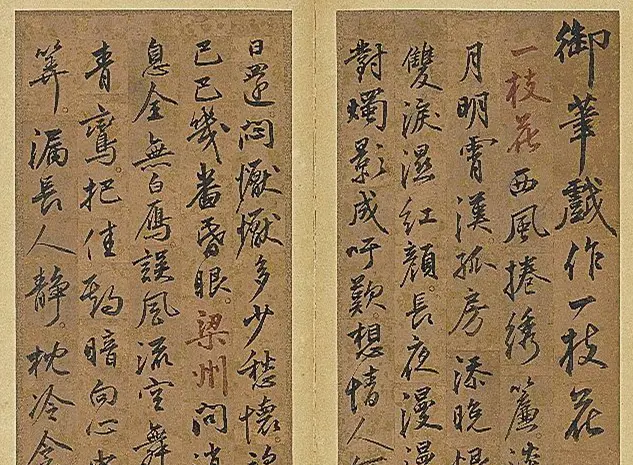 御筆戲作一枝花
一枝花西風捲綉簾淡
月明霄漢孤房添晚
雙淚濕紅顏長夜漫漫
對燭影成吁歎想情人
日還悶懨懨多少愁懷
巳巳幾畨昏眼梁州问
息全無白雁誤風流空舞
青鸞把佳期暗向心
筭漏長人靜枕冷